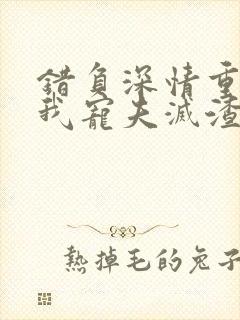 錯負深情重
我寵夫滅渣
熱掉毛的兔子